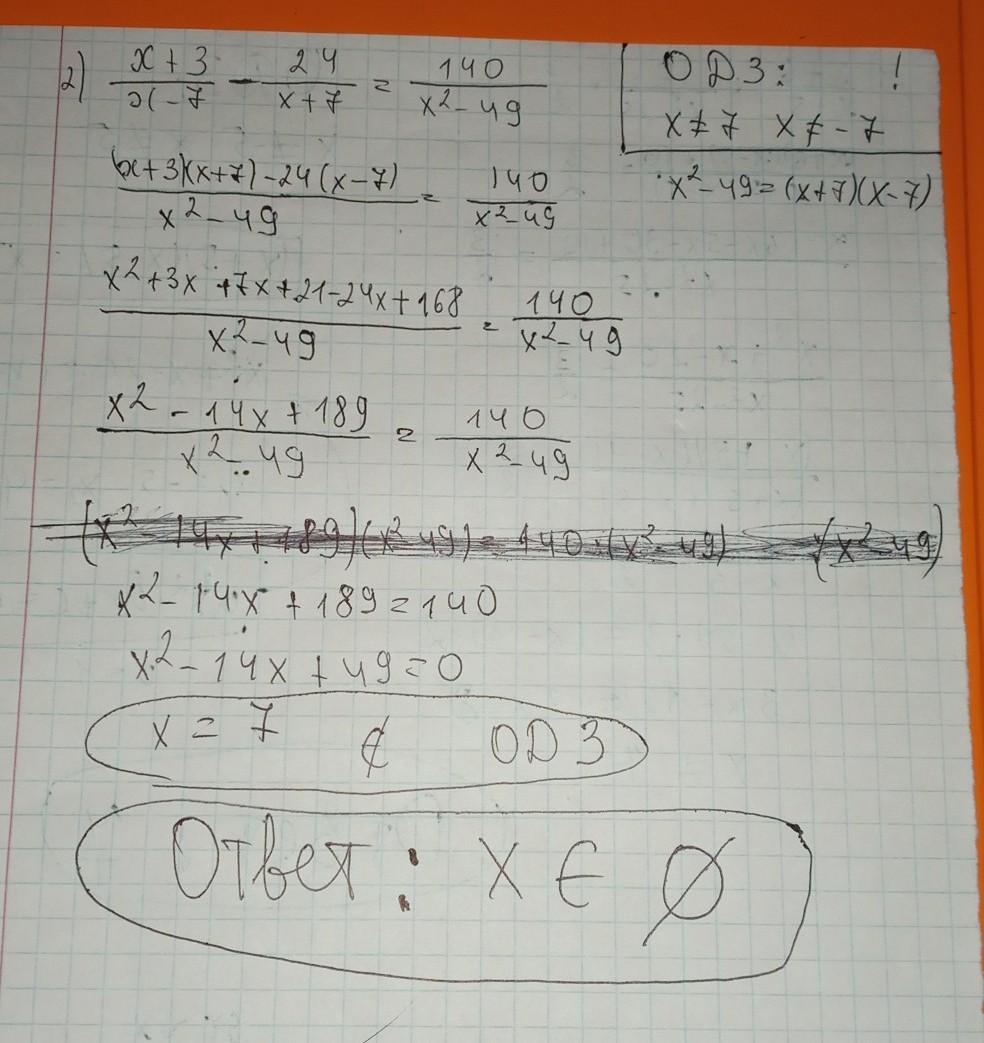 2) (x+3)/(x-7) - 24/(x+7) = 140/(x²-49)
ОДЗ: !
x≠7 x≠-7
((x+3)(x+7)-24(x-7))/(x²-49) = 140/(x²-49)
x²-49=(x+7)(x-7)
(x²+3x+7x+21-24x+168)/(x²-49) = 140/(x²-49)
(x²-14x+189)/(x²-49) = 140/(x²-49)
(x²-14x+189)(x²-49)=140·(x²-49) (x²-49)
x²-14x+189=140
x²-14x+49=0
x=7 ∉ ОДЗ
Ответ: x∈∅